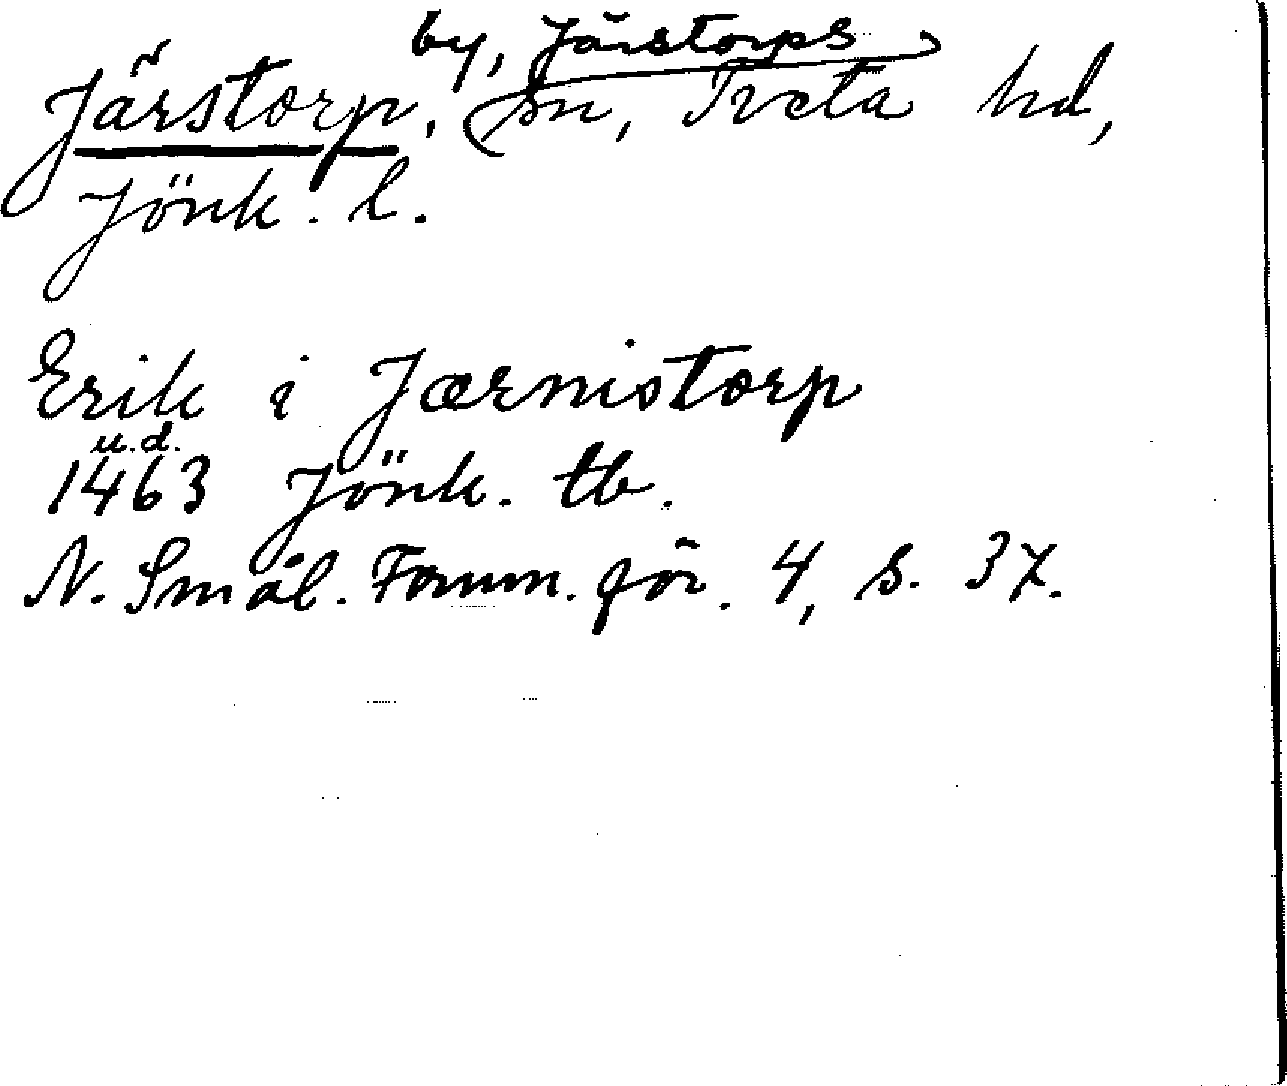 by, Järstorps
Järstorp, sn, Tveta hd,
Jönk. l.
Erik i Jærnistorp
u.d.
1463 Jönk. tb.
N. Smål. Fornm. för. 4, s. 37.